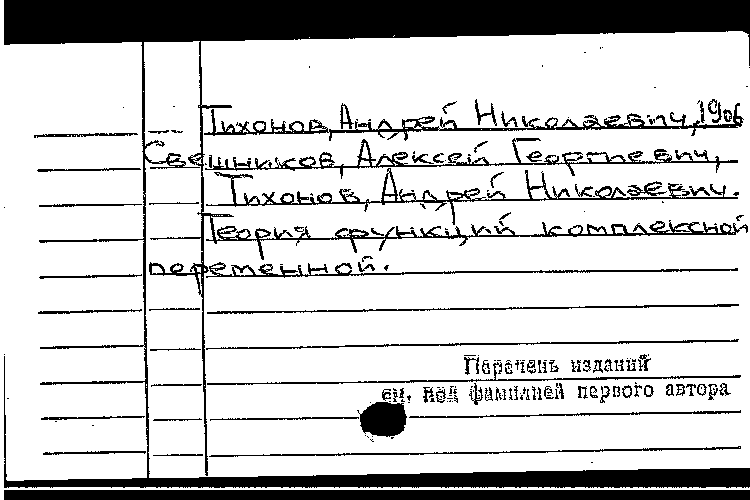 Тихонов, Андрей Николаевич, 1906
Свешников, Алексей Георгиевич,
Тихонов, Андрей Николаевич.
Теория функций комплексной
переменной.
Перечень изданий
см. под фамилией первого автора